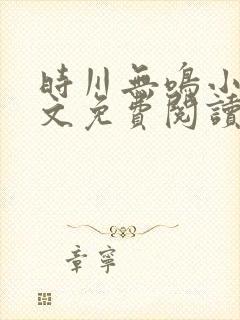 時川無鳴小
文免費閱讀
章寧